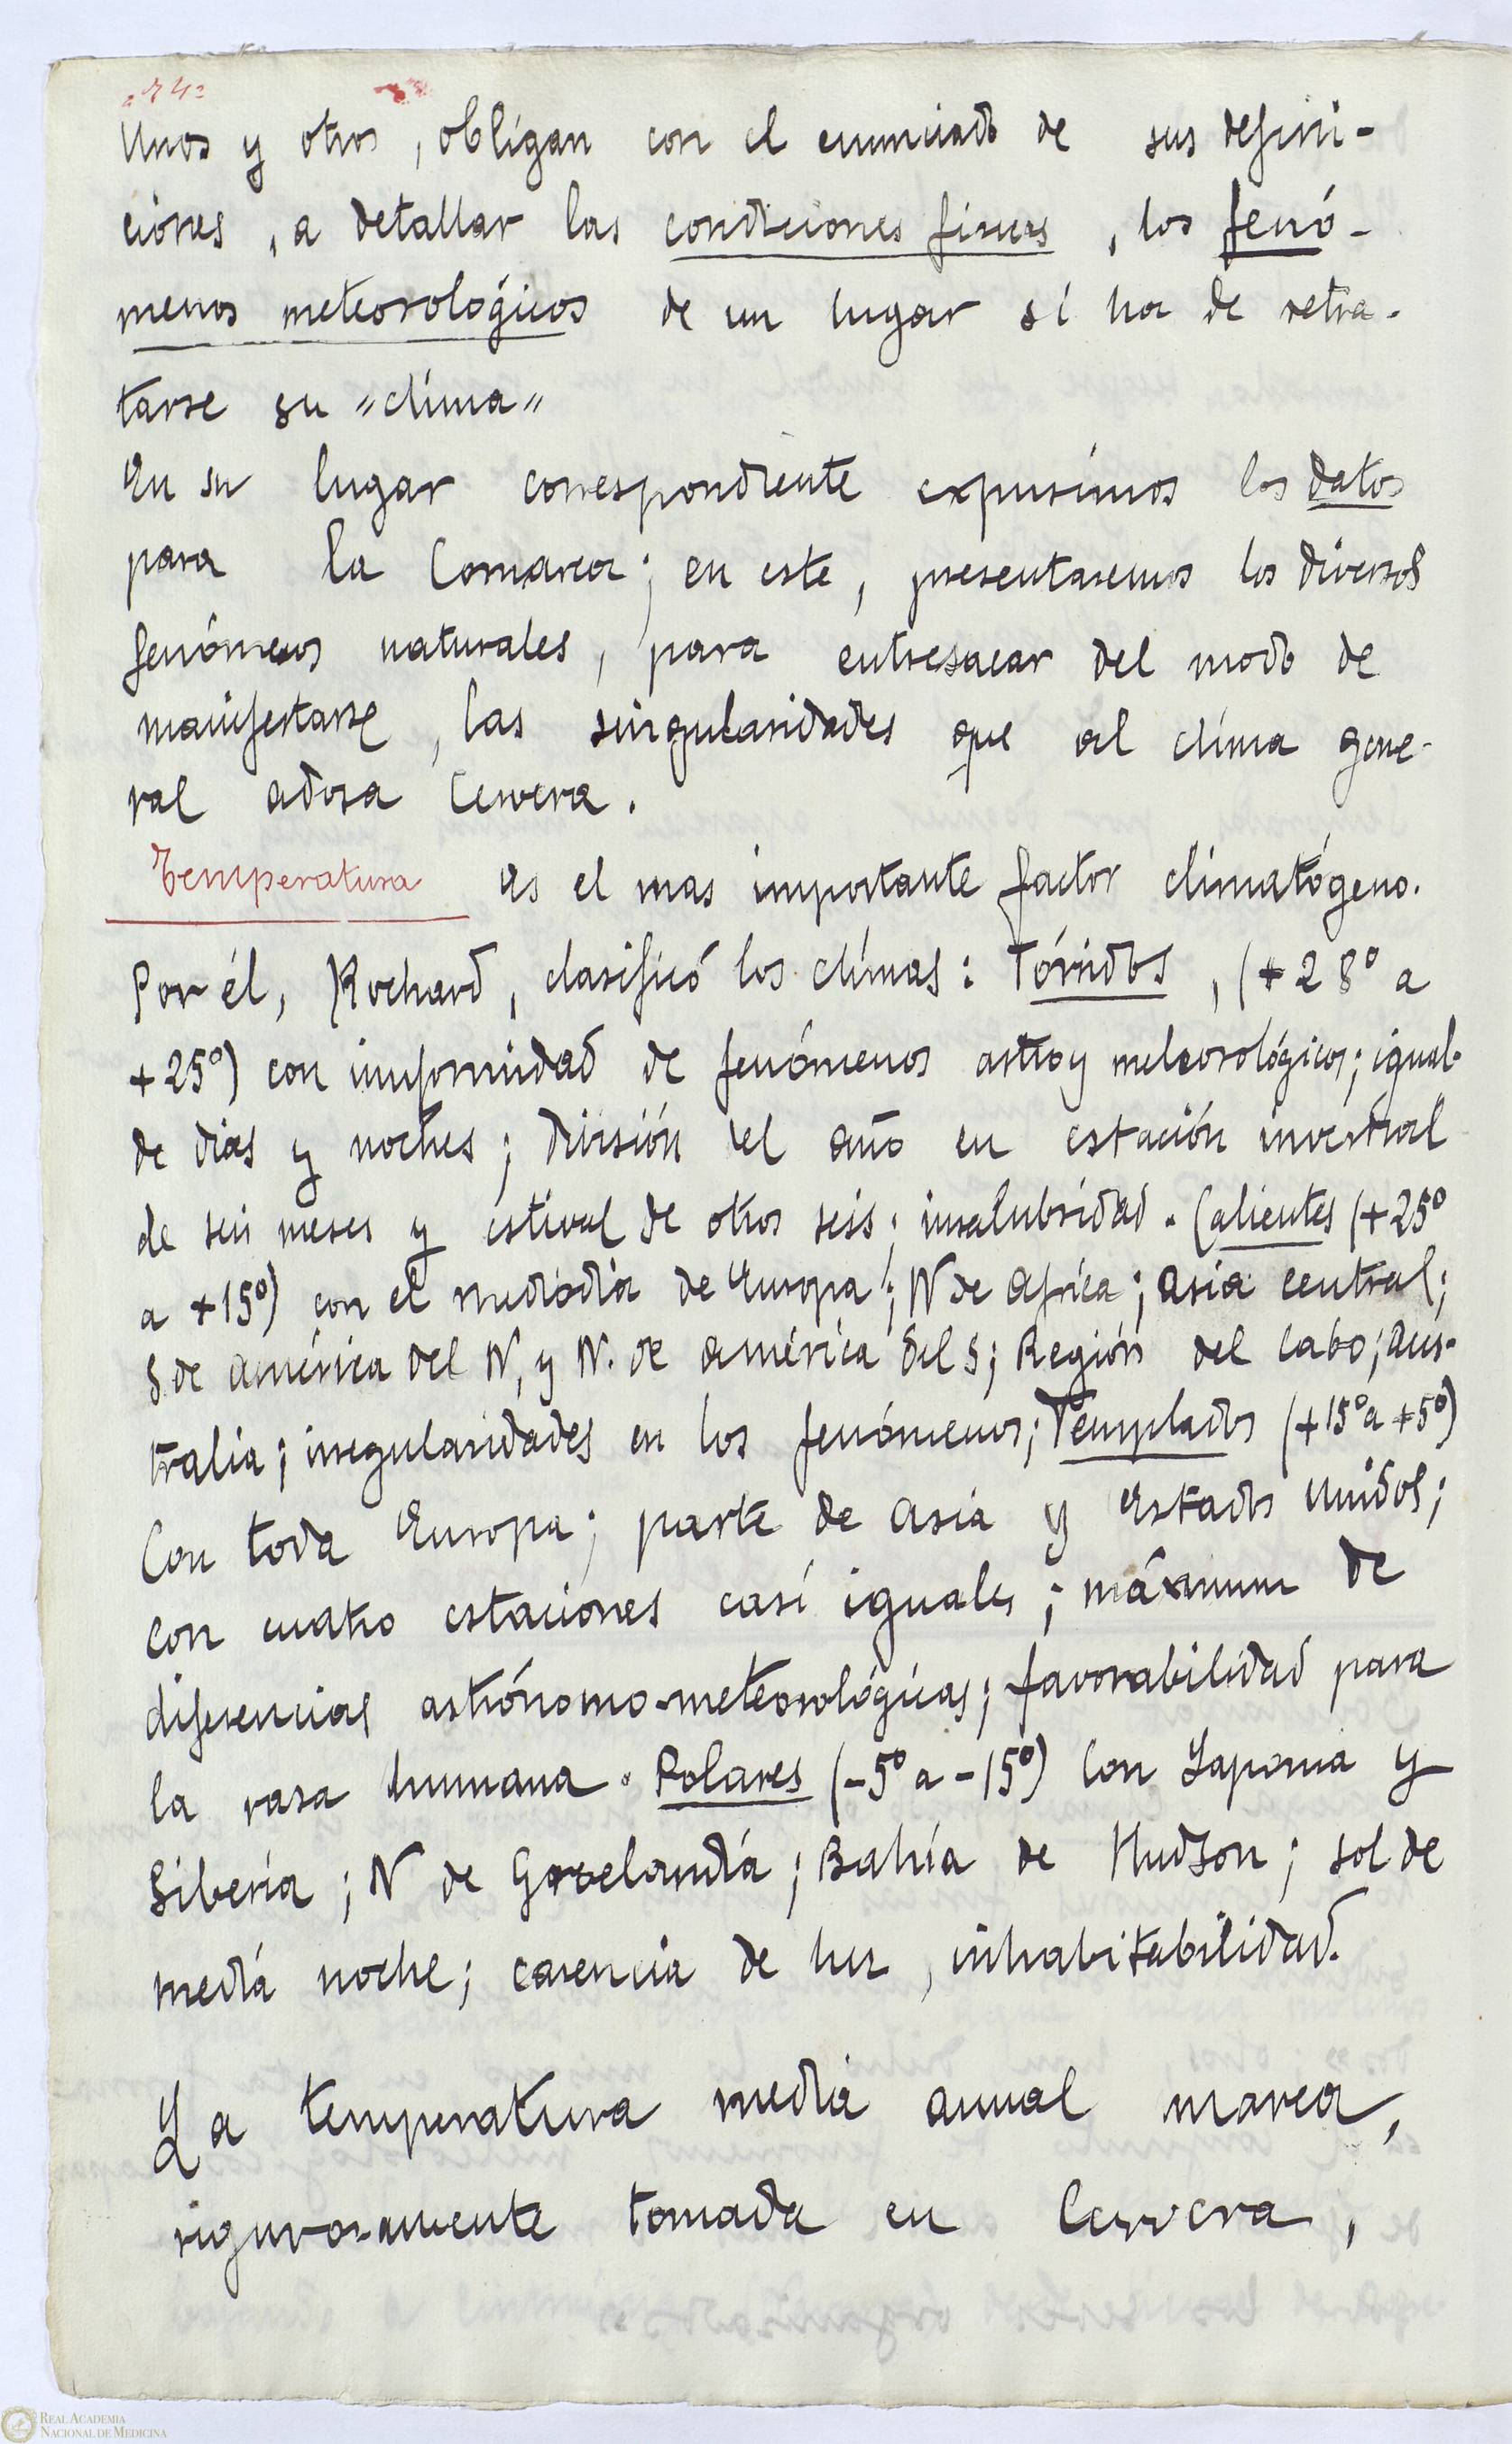 =74=
Unos y otros, obligan con el enunciado de sus defini-
ciones, a detallar las condiciones físicas, los fenó-
menos meteorológicos de un lugar si ha de retra-
tarse su "clima"
En su lugar correspondiente expusimos los datos
para la Comarca; en este, presentaremos los diversos
fenómenos naturales, para entresacar del modo de
manifestarse, las singularidades que al clima gene-
ral adosa Cervera.
Temperatura es el mas importante factor climatógeno.
Por él, Rochard, clasificó los climas: Tórridos, (+28º a
+25º) con uniformidad de fenómenos astro y meteorológicos; igual-
de dias y noches; división del año en estación invernal
de seis meses y estival de otros seis; insalubridad. Calientes (+25º
a +15º) con el mediodia de Europa; N de Africa; Asia central;
S. de América del N, y N. de América del S; Región del Cabo; Aus-
tralia; irregularidades en los fenómenos; Templados (+15º a +5º)
Con toda Europa; parte de Asia y Estados Unidos;
con cuatro estaciones casi iguales; máximum de
diferencias astrónomo-meteorológicas; favorabilidad para
la raza humana. Polares (-5º a -15º) Con Laponia y
Siberia; N de Groelandia; Bahía de Hudson; sol de
media noche; carencia de luz, inhabitabilidad.
La temperatura media anual marca,
rigurosamente tomada en Cervera,
REAL ACADEMIA
NACIONAL DE MEDICINA